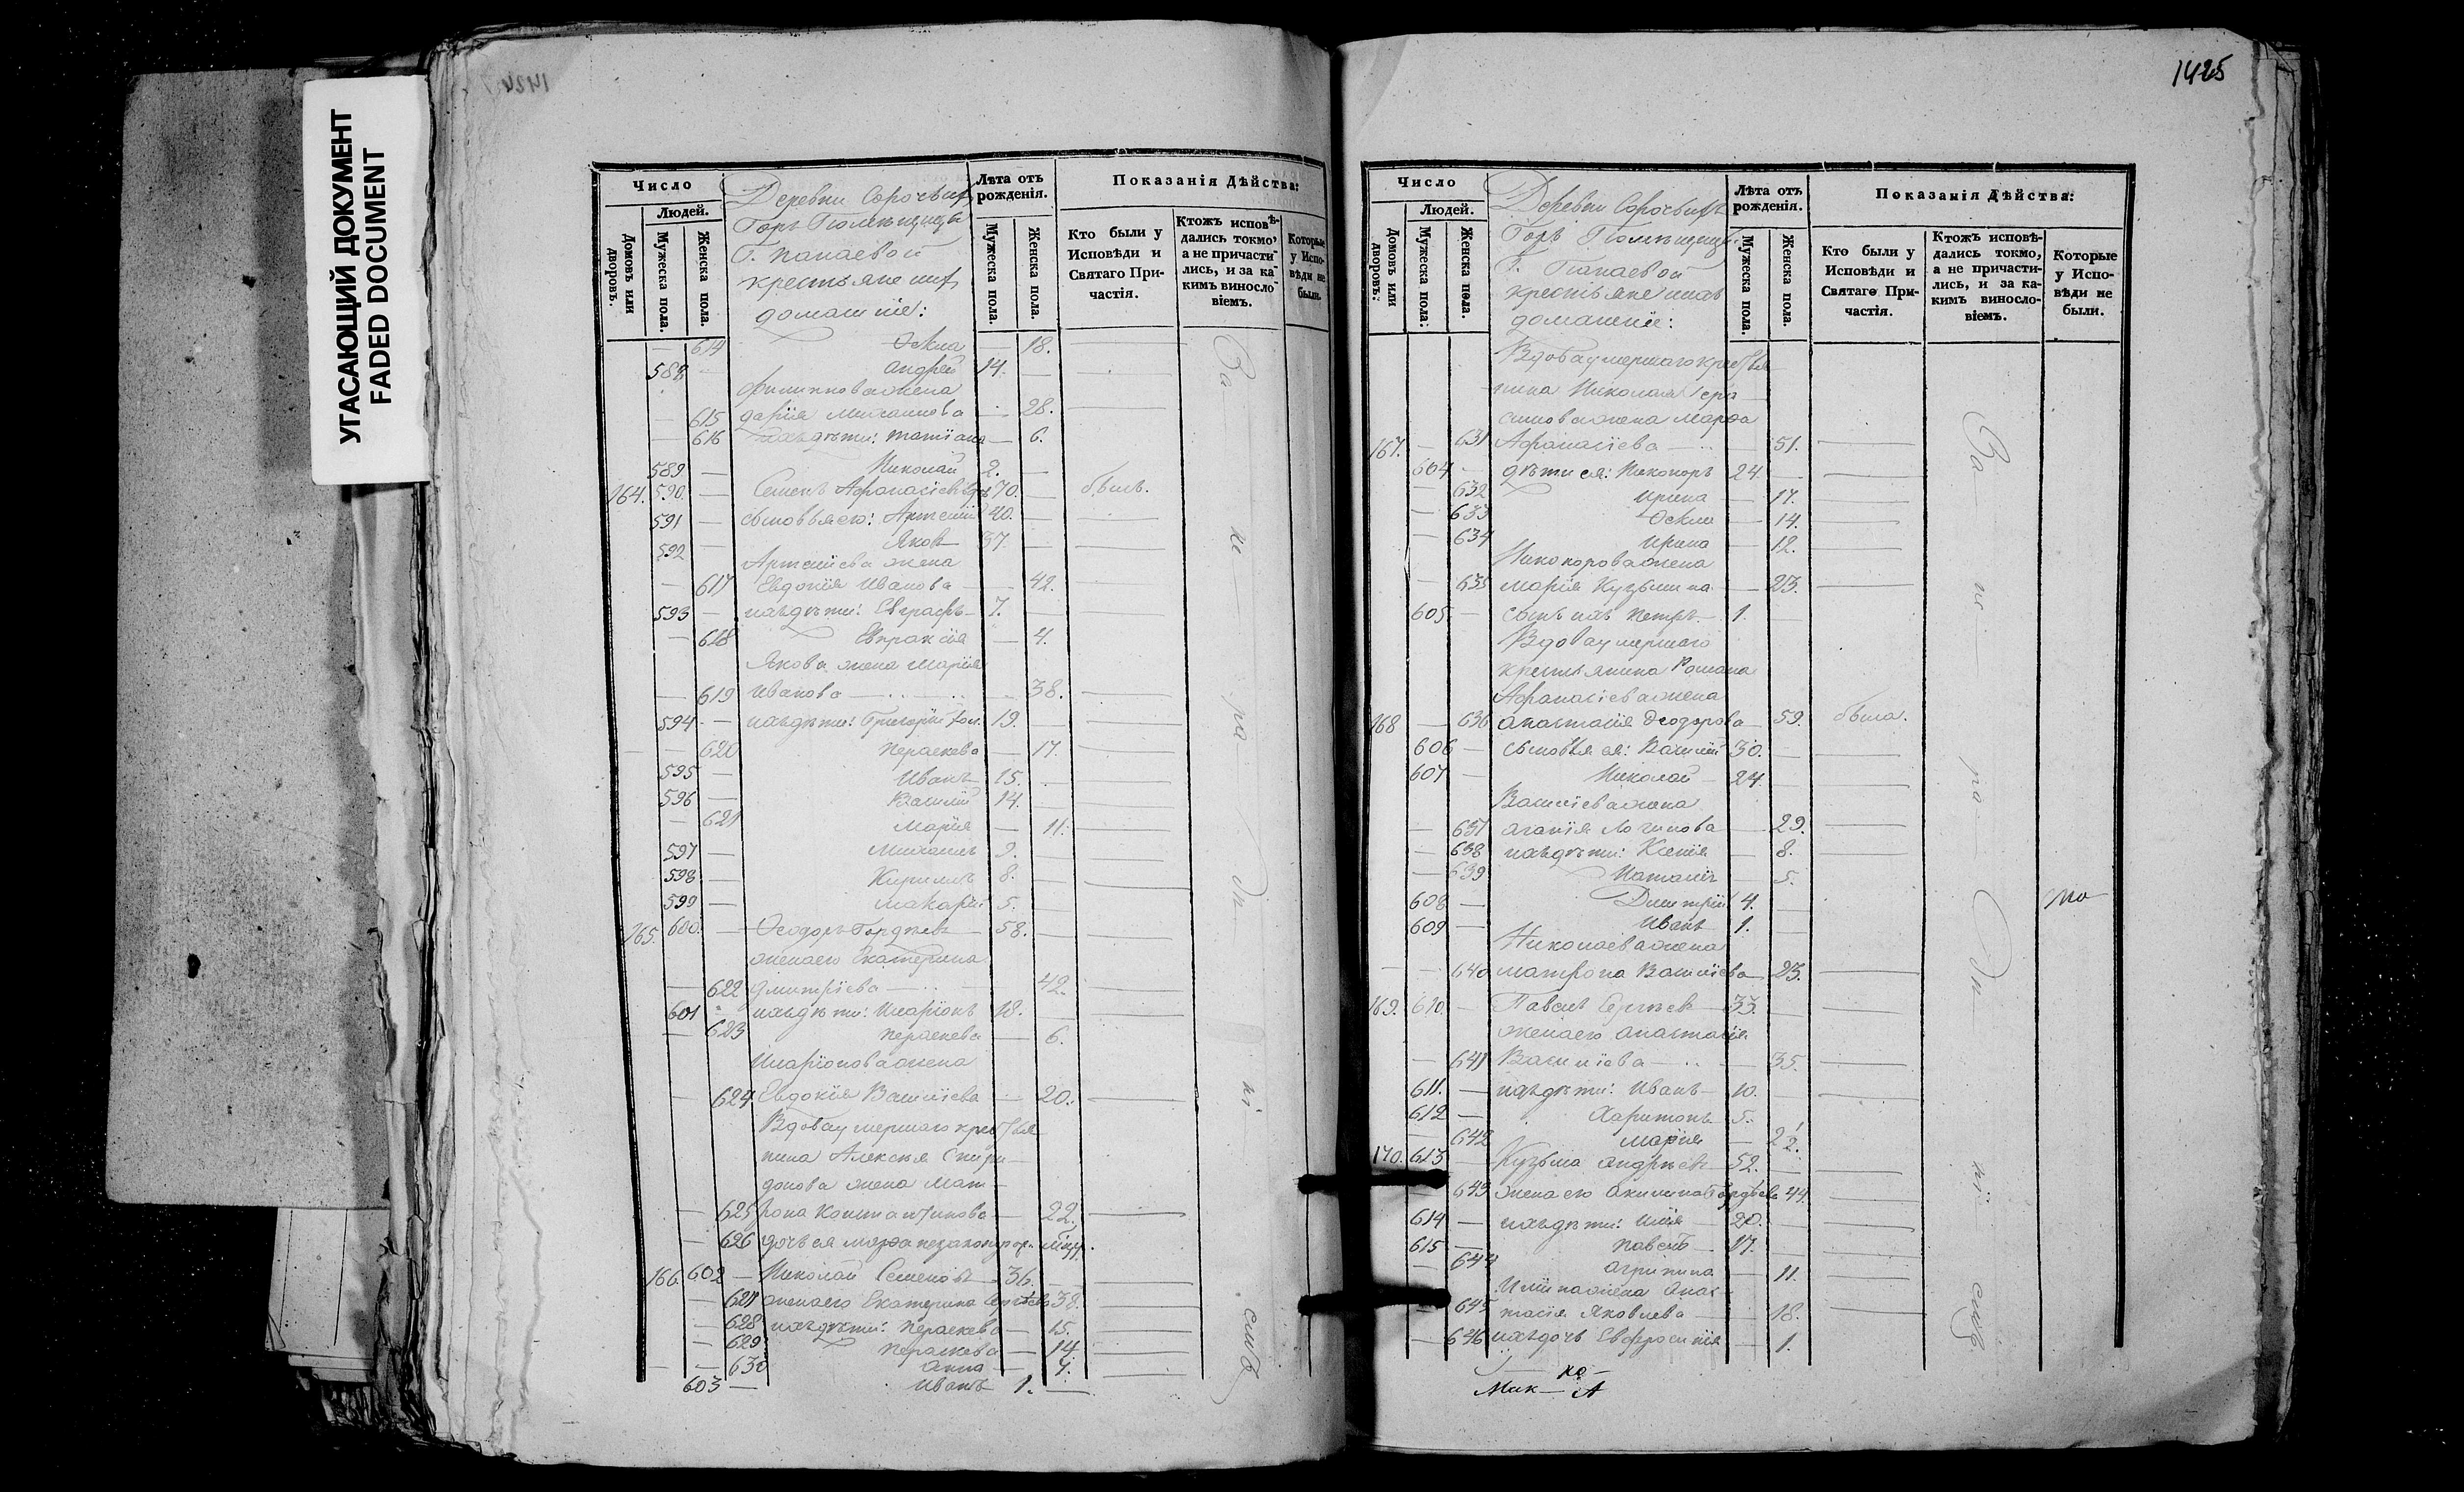 1424
УГАСАЮЩИЙ ДОКУМЕНТ
FADED DOCUMENT
Число
Людей.
Домовъ или дворовъ.
Мужеска пола.
Женска пола.
Деревни Сорочьихъ
Горъ Помѣщицы
Г. Панаевой
крестьяне ихъ
домашніе:
Лѣта отъ рожденія.
Мужеска пола.
Женска пола.
Показанія Дѣйства:
Кто были у Исповѣди и Святаго Причастія.
Ктожъ исповѣдались токмо, а не причастились, и за какимъ винословіемъ.
Которые у Исповѣди не были.
— 614 Ѳекла — 18.
588 — Андрей 14. —
Филиппова жена
— 615 Дарія Михаилова — 28.
— 616 ихъ дѣти: Татіана — 6.
589 — Николай 2. —
164. 590. — Семенъ Афанасіевъ 70. — былъ.
591 — сыновья его: Артемій 40. —
592 — Яковъ 37. —
Артеміева жена
— 617 Евдокія Иванова — 42.
593 — ихъ дѣти: Евграфъ 7.
— 618 Евпраксія — 4.
Якова жена Марія
— 619 Иванова — 38.
594 — ихъ дѣти: Григорій 19. —
— 620 Пераскева — 17.
595 — Иванъ 15. —
596 — Василій 14. —
— 621 Марія — 11.
597 — Михаилъ 9. —
598 — Кирилъ 8. —
599 — Макарій 5. —
165. 600. — Ѳеодоръ Гордѣевъ 58. —
жена его Екатерина
— 622 Дмитріева — 42.
601 — ихъ дѣти: Иларіонъ 18. —
— 623 Пераскева — 6.
Иларіонова жена
— 624 Евдокія Василіева — 20.
Вдова умершаго крестья
нина Алексѣя Спири
донова жена Мат
— 625 рона Константинова — 22.
— 626 дочь ея Марѳа незаконорож.
166. 602 — Николай Семеновъ 36. —
— 627 жена его Екатерина Сергѣева 38.
— 628 ихъ дѣти: Пераскева — 15.
— 629 Пераскева — 14.
— 630 Анна — 4.
603 — Иванъ 1. —
За не ра дѣ ні емъ
1425
Число
Людей.
Домовъ или дворовъ.
Мужеска пола.
Женска пола.
Деревни Сорочьихъ
Горъ Помѣщицы
Г. Панаевой
крестьяне ихъ
домашніе:
Лѣта отъ рожденія.
Мужеска пола.
Женска пола.
Показанія Дѣйства:
Кто были у Исповѣди и Святаго Причастія.
Ктожъ исповѣдались токмо, а не причастились, и за какимъ винословіемъ.
Которые у Исповѣди не были.
Вдова умершаго крестья
нина Николая Гера
симова жена Марѳа
167. — 631 Афанасіева — 51.
604 — дѣти ея: Никоноръ 24. —
— 632 Ирина — 17.
— 633 Ѳекла — 14.
— 634 Ирина — 12.
Никонорова жена
— 635 Марія Кузьмина — 23.
605 — сынъ ихъ Петръ 1. —
Вдова умершаго
крестьянина Романа
Афанасіева жена
168 — 636 Анастасія Ѳеодорова — 59. была.
606 — сыновья ея: Василій 30. —
607 — Николай 24. —
Василіева жена
— 637 Агапія Логинова — 29.
— 638 ихъ дѣти: Ксенія — 8.
— 639 Наталія — 5.
608 — Димитрій 4. —
609 — Иванъ 1. —
Николаева жена
— 640 Матрона Василіева — 23.
169. 610. — Павелъ Сергѣевъ 33. —
жена его Анастасія
— 641 Василіева — 35.
611. — ихъ дѣти: Иванъ 10. —
612 — Харитонъ 5. —
— 642 Марія — 2½.
170. 613 — Кузьма Андрѣевъ 52. —
— 643 жена его Акилина Гордѣева 44.
614 — ихъ дѣти: Илія 20. —
615 — Павелъ 17. —
— 644 Агрипина — 11.
Иліина жена Анас
— 645 тасія Яковлева — 18.
— 646 ихъ дочь Евфросинія — 1.
За не ра дѣ ні емъ